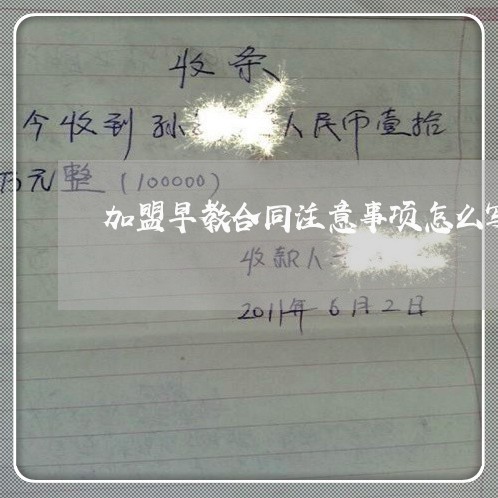 收条
今收到孙 人民币壹拾
万元整(100000)
加盟早教合同注意事项怎么写
收款人
2011年6月2日